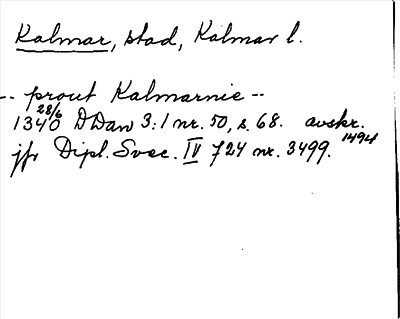 Kalmar, stad, Kalmar l.
-- prout Kalmarnie --
28/6
1340 DDan 3:1 nr. 50, s. 68. avskr. 1494
jfr Dipl. Svec. IV 724 nr. 3499.